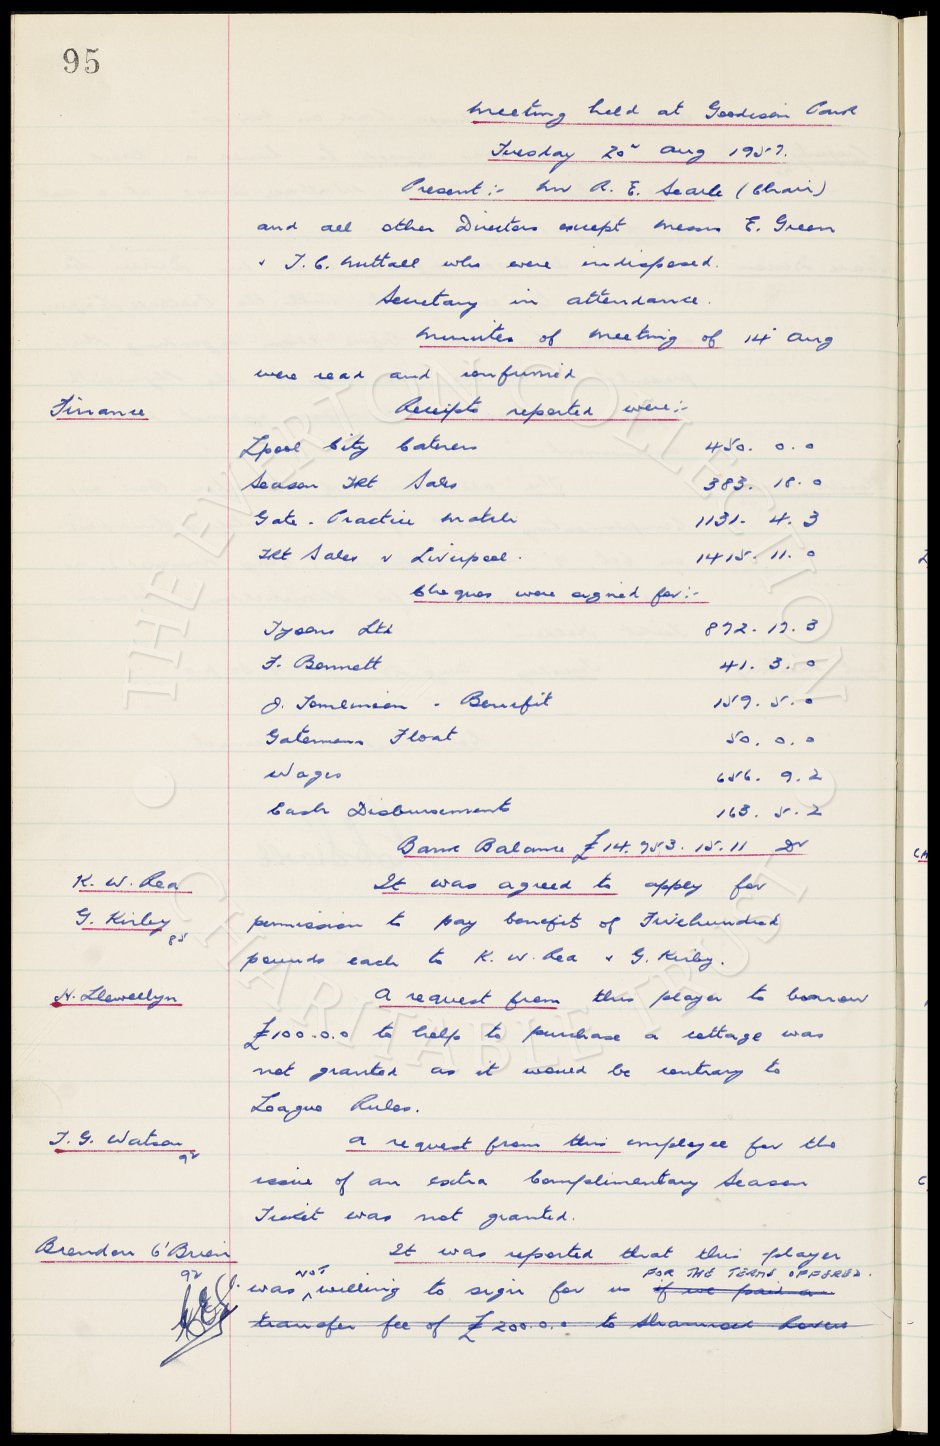 95
Meeting held at Goodison Park
Tuesday 20th Aug 1957.
Present :- Mr R. E. Searle (Chair)
and all other Directors except Messrs E. Green
& T. C. Nuttall who were indisposed.
Secretary in attendance.
Minutes of Meeting of 14th Aug
were read and confirmed
Finance Receipts reported were:-
Lpool City Caterers 450. 0. 0
Season Tkt Sales 383. 18. 0
Gate - Practice Match 1131. 4. 3
Tkt Sales v Liverpool. 1415. 11. 0
Cheques were signed for:-
Tysons Ltd 892. 17. 3
F. Bennett 41. 3. 0
J. Tomlinson - Benefit 159. 5. 0
Gatemans Float 50. 0. 0
Wages 656. 9. 2
Cash Disbursements 163. 5. 2
Bank Balance £14. 953. 15. 11 Dr
K. W. Rea It was agreed to apply for
G. Kirby 85 permission to pay benefits of Fivehundred
pounds each to K. W. Rea & G. Kirby.
H. Llewellyn A request from this player to borrow
£100.0.0 to help to purchase a cottage was
not granted as it would be contrary to
League Rules.
T. G. Watson 92 A request from this employee for the
issue of an extra Complimentary Season
Ticket was not granted.
Brendan O'Brien It was reported that this player
92 was NOT willing to sign for us FOR THE TERMS OFFERED. if we paid a
transfer fee of £200.0.0 to Shamrock Rovers
THE EVERTON COLLECTION
CHARITABLE TRUST